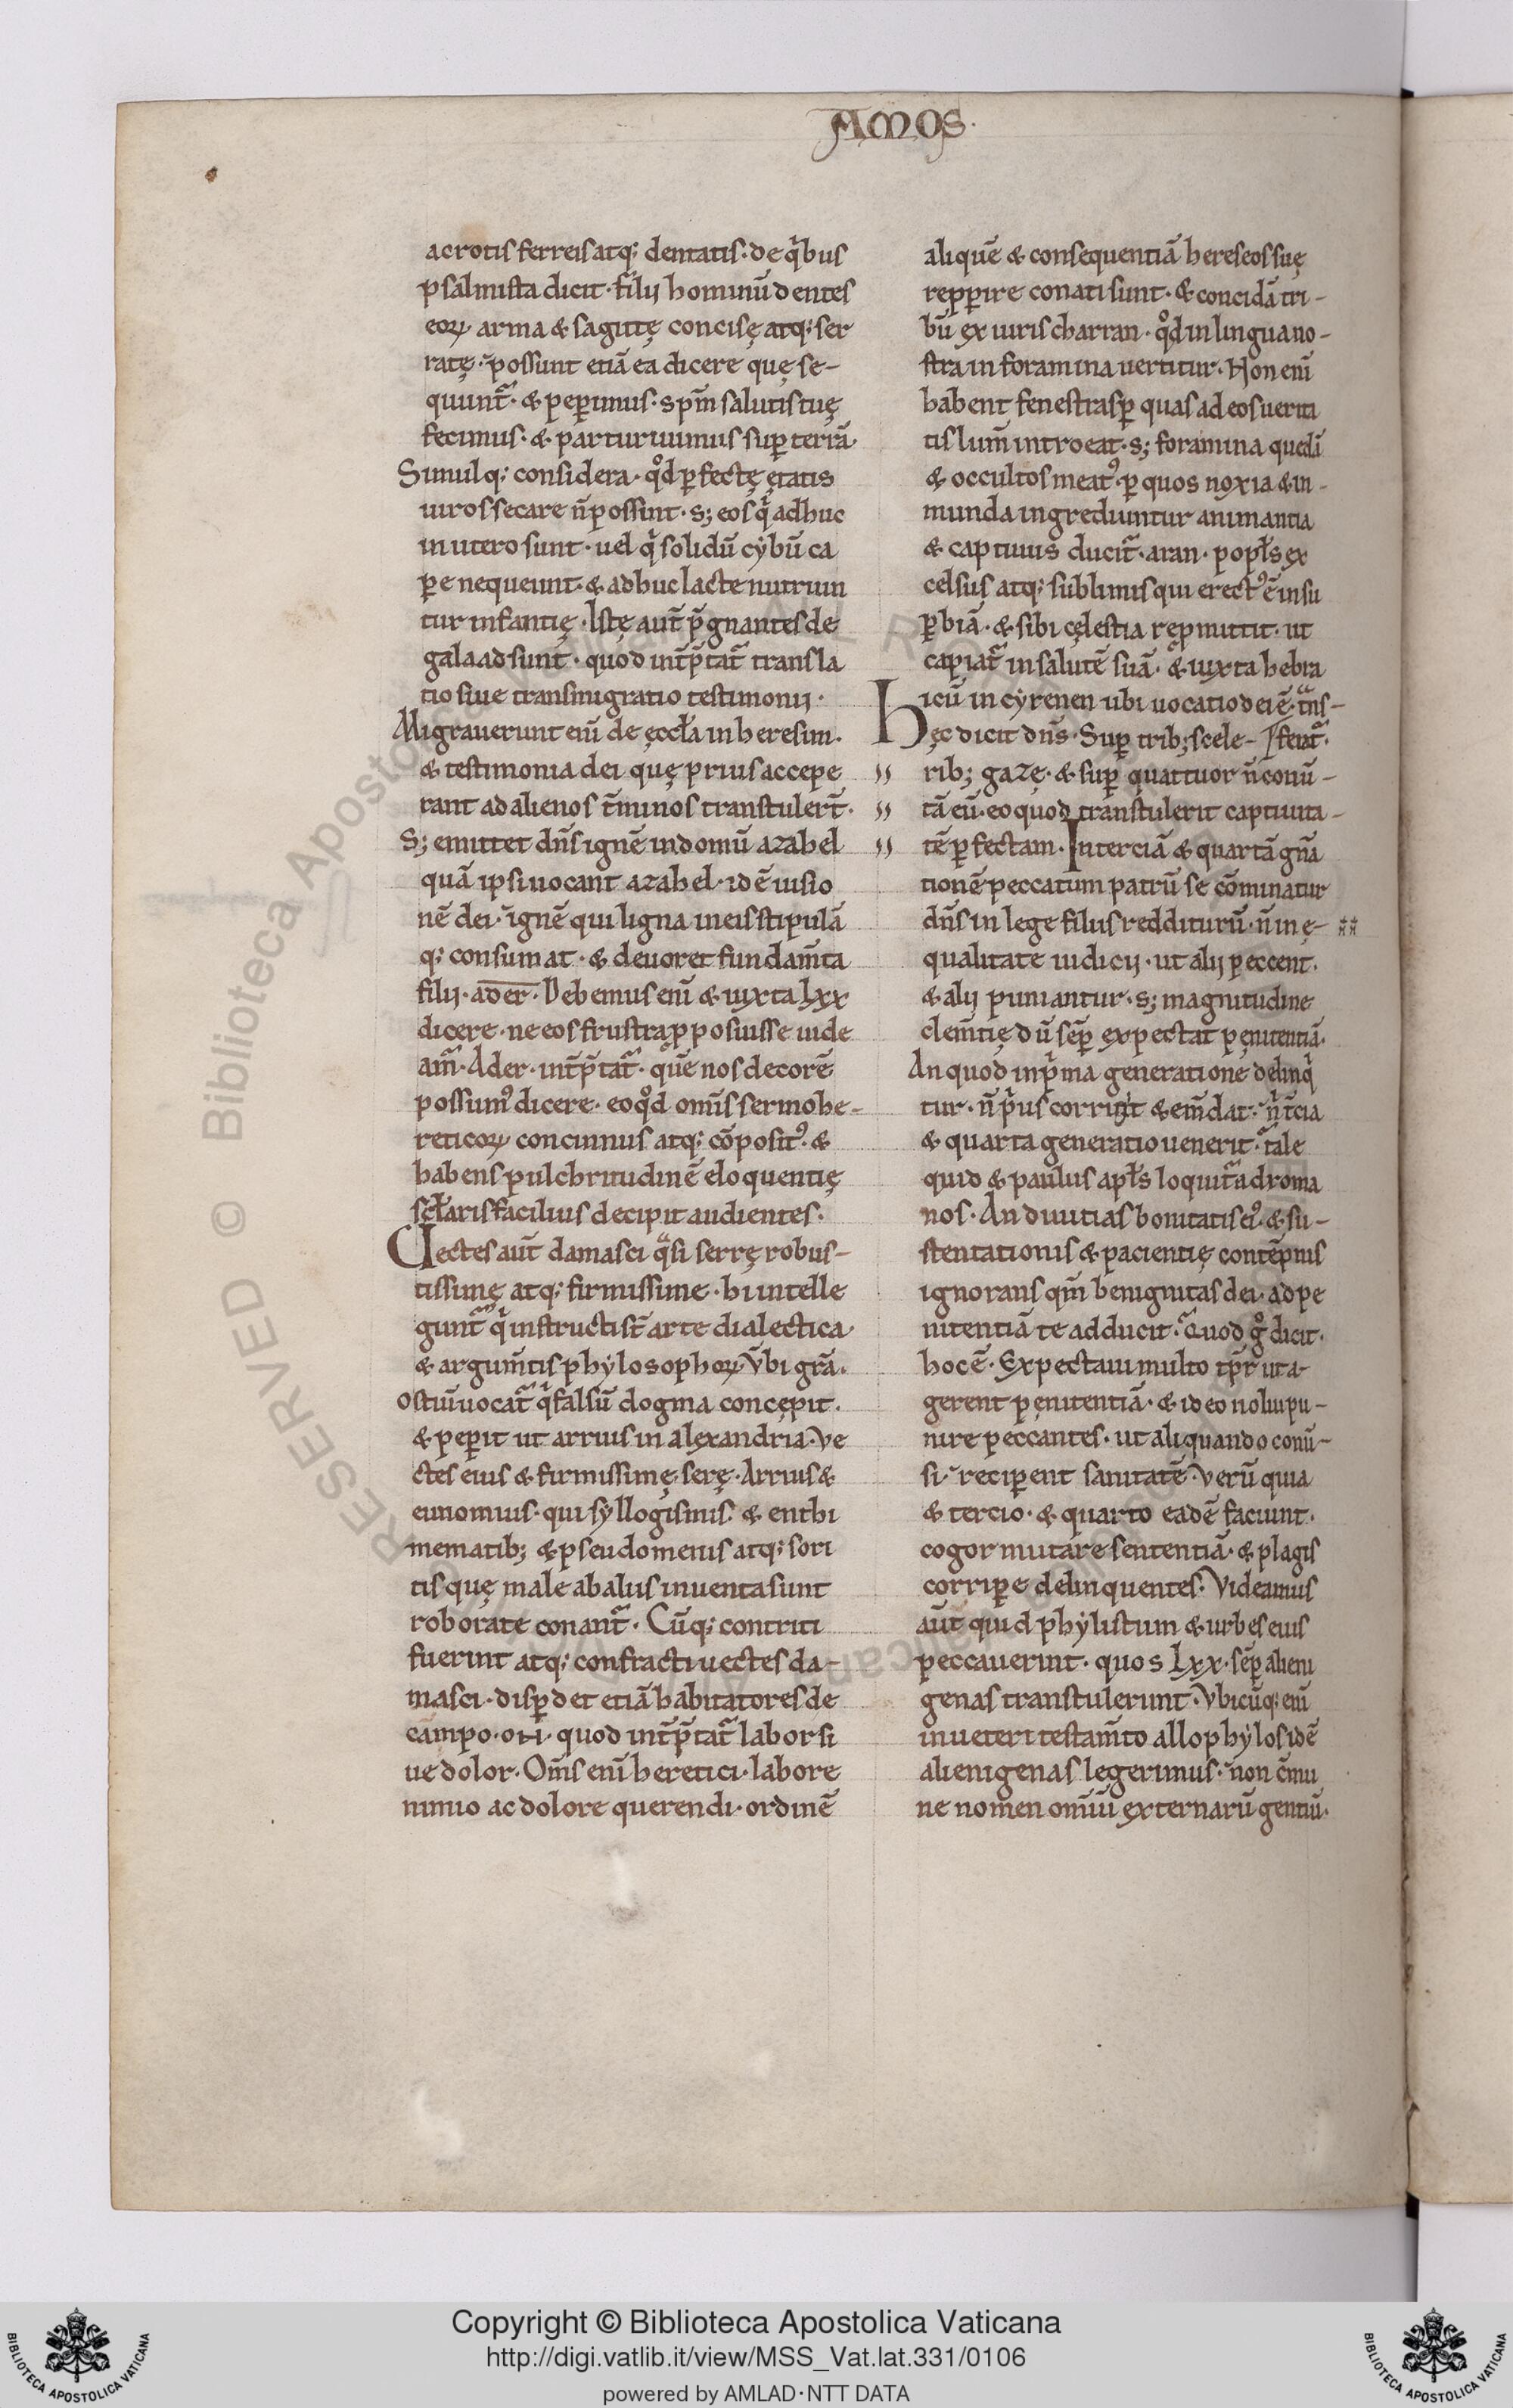 AMOS.
acrotis ferreis atq; dentatis. de qͥbus
psalmista dicit. filii hominū dentes
eoꝝ arma & sagittę concisę atq; ser
ratę. possunt etiā ea dicere quę se-
quunt̃. & peꝑimus. sp̄m salutis tuę
fecimus. & parturiuimus suꝑ terrā.
Simulq; considera. qͦd ꝑfectę ętatis
uiros secare n̄ possint. s; eos qͥ adhuc
in utero sunt. uel qͥ solidū cybū ca
ꝑe nequeunt. & adhuc lacte nutriun
tur infantię. Istę aut̄ p̄gnantes de
galaad sunt. quod int̄p̄tat̃ transla
tio siue transmigratio testimonii.
Migrauerunt enī de ęccła in heresim.
& testimonia dei quę prius accepe
rant ad alienos t̄minos transtuler̄t.
S; emittet dn̄s ignē in domū azahel
quā ipsi uocant azahel. id ē uisio
nē dei. ignē qui ligna in eis stipulā
q; consumat. & deuoret fundam̄ta
filii. ader. Debemus enī & iuxta lxx
dicere. ne eos frustra ꝓposuisse uide
am̃. Ader. int̄p̄tat̃. quē nos decorē
possumꝰ dicere. eo qͦd omīs sermo he-
reticoꝝ concinnus atq; cōpositꝰ. &
habens pulchritudinē eloquentię
scłaris facilius decipit audientes.
Uectes aut̄ damasci qͣsi serrę robus-
tissimę atq; firmissime. hi intelle
gunt̃ qͥ instructi st̄ arte dialectica.
& argum̄tis phylosophoꝝ. Vbi grā.
ostiū uocat̃ qͥ falsū dogma concępit.
& peꝑit ut arrius in alexandria. ve
ctes eius & firmissimę serę. Arrius &
eunomius. qui syllogismis & enthi
mematib; & pseudomenis atq; sori
tis quę male ab aliis inuenta sunt
roborare conant̃. Cūq; contriti
fuerint atq; confracti uectes da-
masci. disꝑdet etiā habitatores de
campo. on. quod int̄p̄tat̃ labor si
ue dolor. Om̄s enī heretici. labore
nimio ac dolore querendi. ordinē
aliquē & consequentiā hereseos suę
repꝑire conati sunt. & concidā tri-
bū ex uiris charran. qͦd in lingua no-
stra in foramina uertitur. Non enī
habent fenestras ꝑ quas ad eos uerita
tis lum̄ introeat. s; foramina quedā
& occultos meatꝰ ꝑ quos noxia & in-
munda ingrediuntur animantia
& captiuus ducit̃. aran. popłs ex
celsus atq; sublimis qui erectꝰ ē in su
ꝑbiā. & sibi cęlestia repmittit. ut
capiat̃ in salutē suā. & iuxta hebra
icū in cyrenen ubi uocatio dei ē. tͣns-
Hęc dicit dn̄s. Suꝑ trib; scele- ferat̃.
rib; gazę. & suꝑ quattuor n̄ conū-
tā eū. eo quod transtulerit captiuita-
tē ꝑfectam. In terciā & quartā gn̄a
tionē peccatum patrū se cōminatur
dn̄s in lege filiis redditurū. n̄ in ę-
qualitate iudicii. ut alii peccent.
& alii puniantur. s; magnitudine
clem̄tię dū sēꝑ expectat pęnitentiā.
An quod in pͥma generatione delinqͥ
tur. n̄ pͥus corrigit & em̄dat. nͥ t̄cia
& quarta generatio uenerit. tale
quid & paulus apłs loquit̃ ad roma
nos. An diuitias bonitatis eiꝰ. & su-
stentationis & pacientię contēpnis
ignorans qm̄ benignitas dei. ad pe
nitentiā te adducit. Quod gͦ dicit.
hoc ē. Expectaui multo tp̄r ut a-
gerent pęnitentiā. & ideo nolui pu-
nire peccantes. ut aliquando conū-
si reciꝑent sanitatē. Verū quia
& tercio. & quarto eadē faciunt.
cogor mutare sententiā. & plagis
corriꝑe delinquentes. Videamus
aut̄ quid phylistum & urbes eius
peccauerint. quos Lxx. sēꝑ alieni
genas transtulerunt. Vbicūq; enī
in ueteri testam̄to allophylos idē
alienigenas legerimus. non c̄mu
ne nomen omniū externarū gentiū.
Copyright © Biblioteca Apostolica Vaticana
http://digi.vatlib.it/view/MSS_Vat.lat.331/0106
powered by AMLAD·NTT DATA
BIBLIOTECA APOSTOLICA VATICANA
BIBLIOTECA APOSTOLICA VATICANA